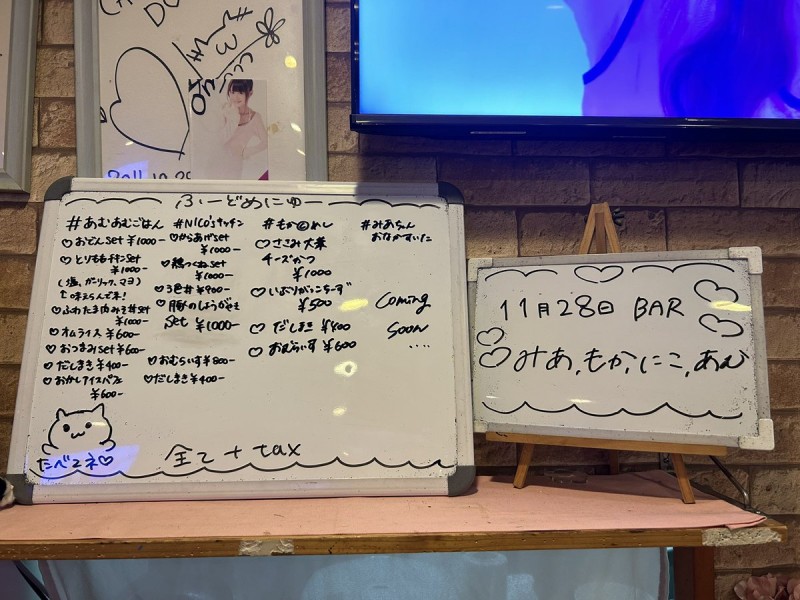 2011 10.29
ふーどめにゅー
#あむあむごはん
♡おでんset ¥1000-
♡とりももチキンset
¥1000-
(塩、ガーリック、マヨ)
↑味えらんでネ!
♡ふわたま肉みそ丼set
¥1000-
♡オムライス ¥600-
♡おつまみset ¥600-
♡だしまき ¥400-
♡おかしアイスパフェ
¥600-
たべてネ♡
#NICO'sキッチン
♡からあげset
¥1000-
♡鶏つくねset
¥1000-
♡3色丼 ¥900-
♡豚のしょうがやき
set ¥1000-
♡おむらいす ¥800-
♡だしまき ¥400-
#もか©めし
♡ささみ大葉
チーズかつ
¥1000
♡いぶりがっこちーず
¥500
♡だしまき ¥400
♡おむらいす ¥600
#みあちゃん
おなかすいた
Coming
Soon
....
全て + tax
11月28日 BAR
♡みあ,もか,にこ,あむ